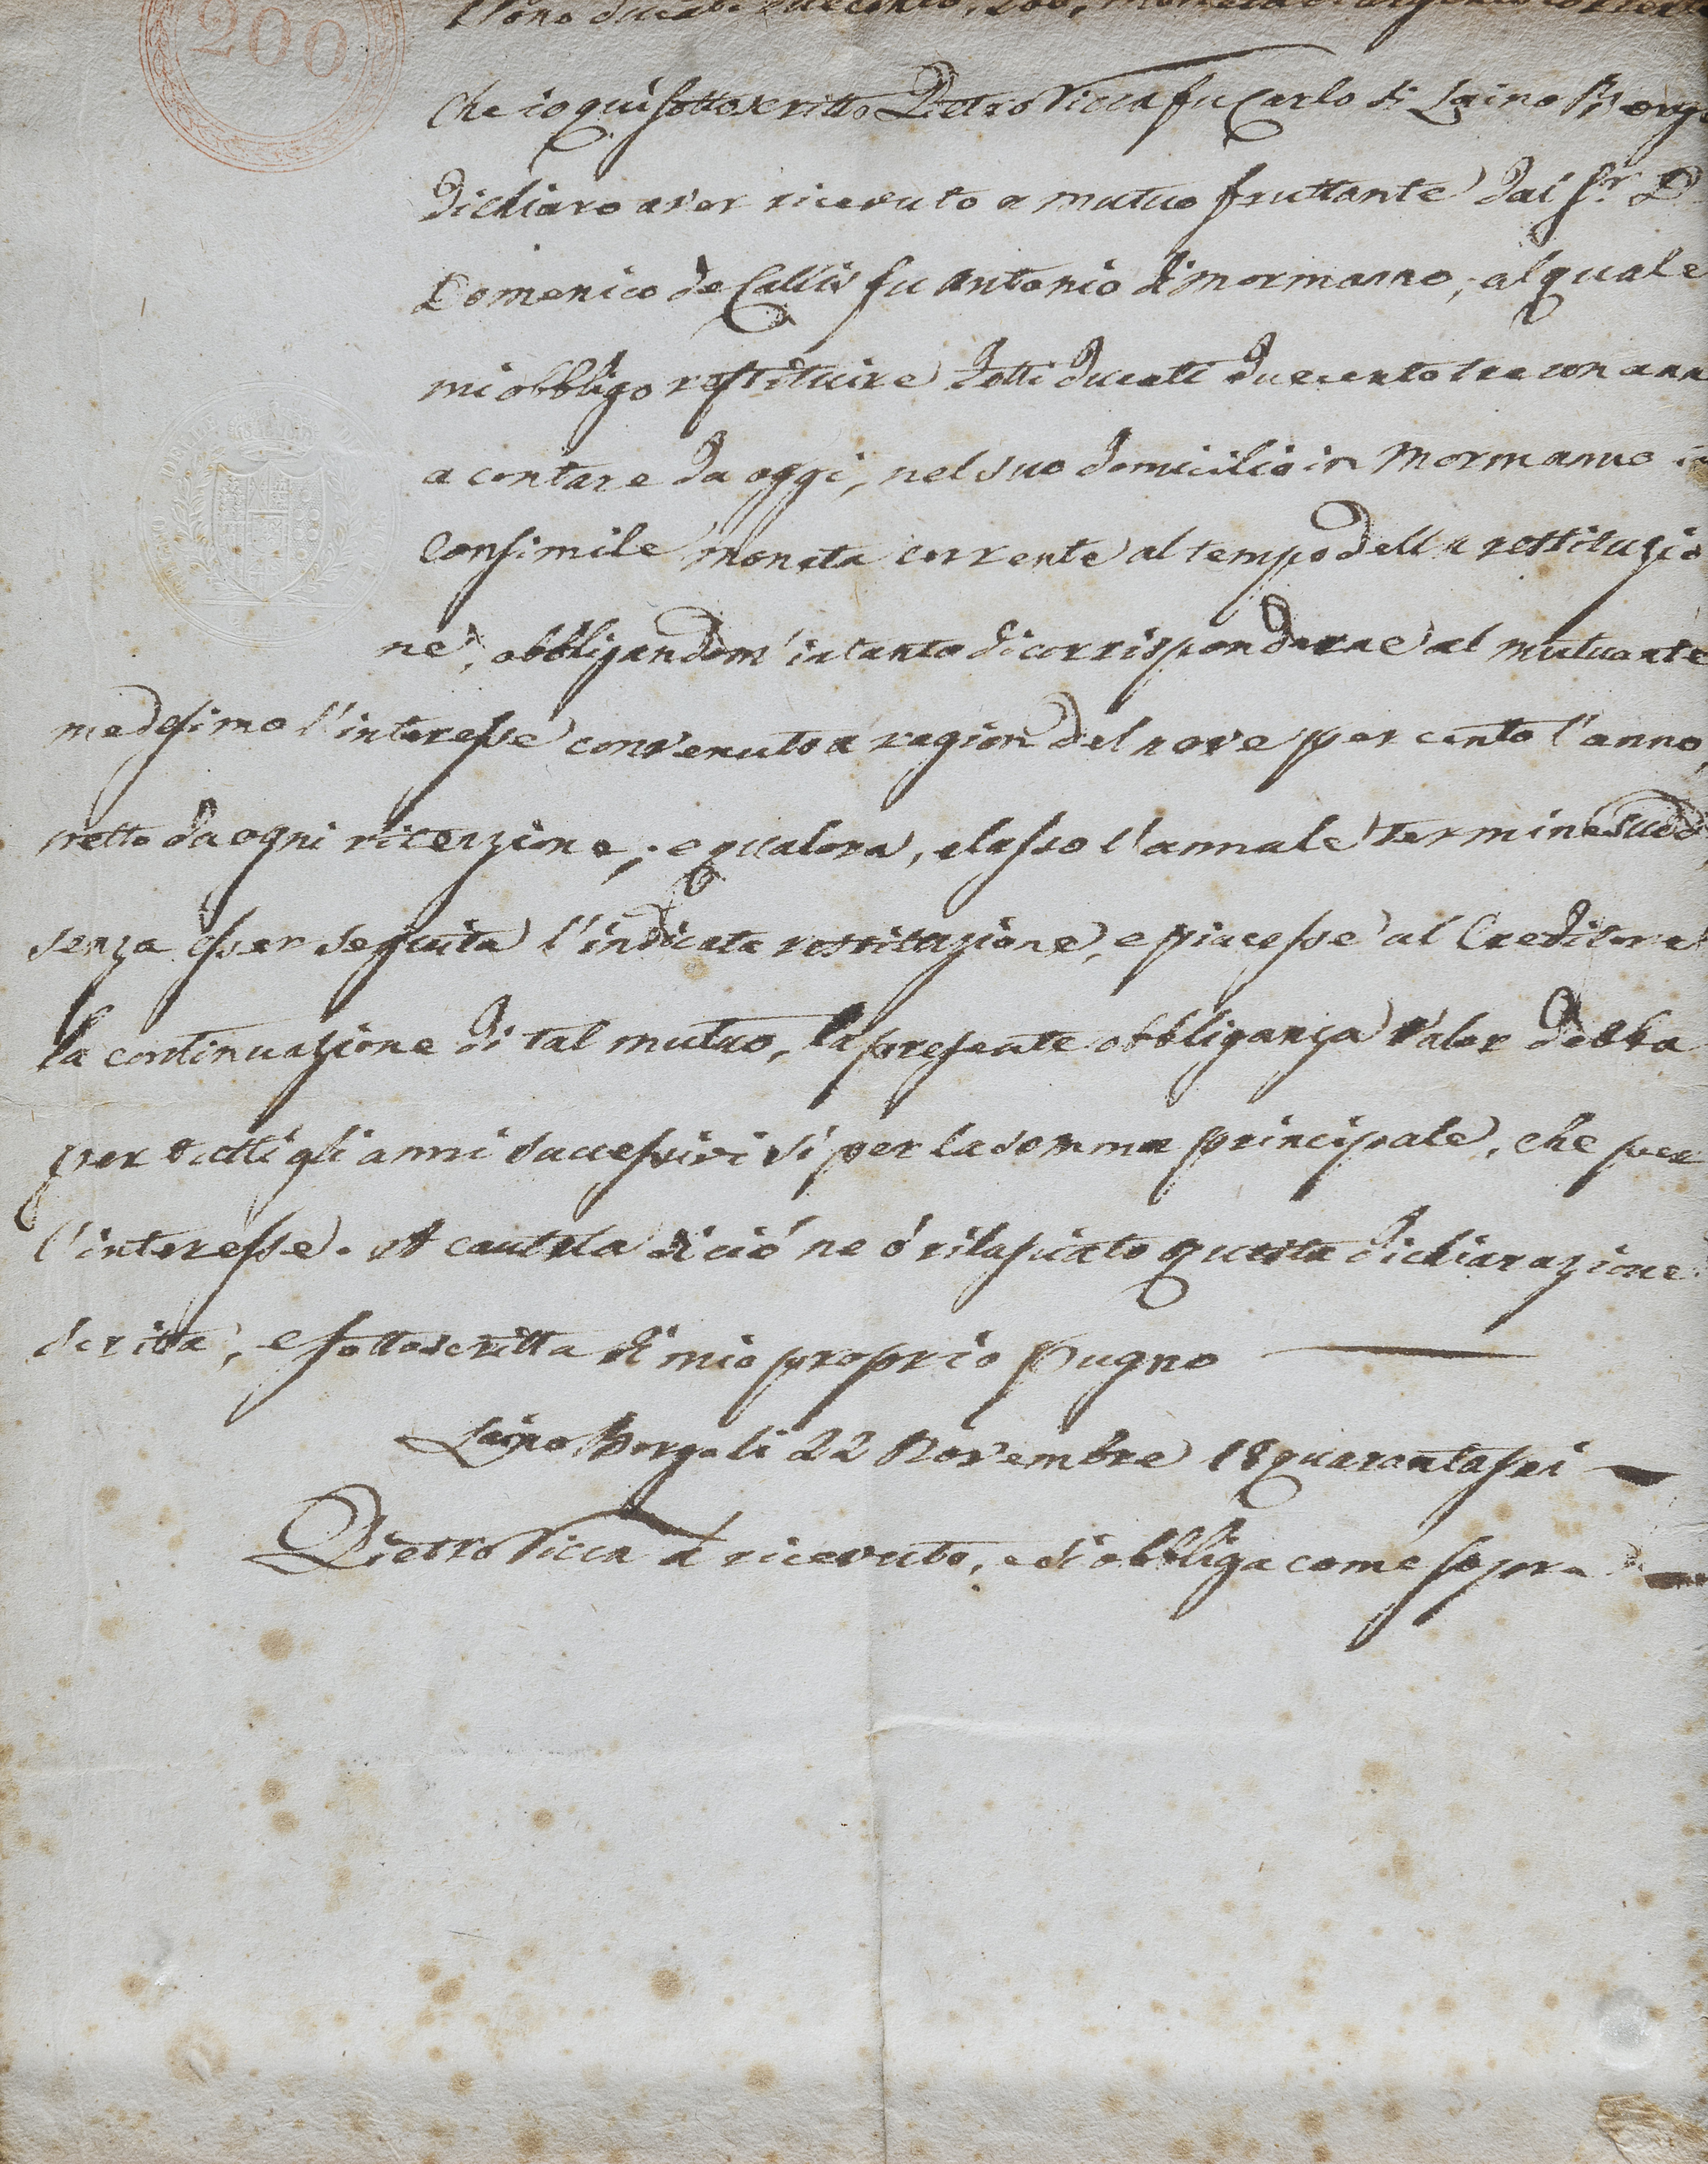 200
Sono ducati duecento, 200, moneta d'argento corrente
Che io qui sottoscritto Pietro Ticca fu Carlo di Laino Borgo
dichiaro aver ricevuto a mutuo fruttante dal Sr. D.
Domenico de Callis fu Antonio di Mormanno, al quale
mi obbligo restituire detti ducati duecento tra un ann
a contare da oggi, nel suo domicilio in Mormanno in
Consimile moneta corrente al tempo della restituzio
ne, obbligandom'intanto di corrisponderne al mutuante
medesimo l'interesse convenuto a ragion del nove per cento l'anno,
netto da ogni ritenzione; e qualora, elasso l'annale termine sud.o
senza esser seguita l'indicata restituzione, e piacesse al Creditore
la continuazione di tal mutuo, la presente obbliganza valer debba
per tutti gli anni successivi sì per la somma principale, che per
l'interesse. A cautela di ciò ne ò rilasciato questa dichiarazione
scritta, e sottoscritta di mio proprio pugno
Laino Borgo li 22 Novembre 18quarantasei
Pietro Ticca à ricevuto, e si obbliga come sopra